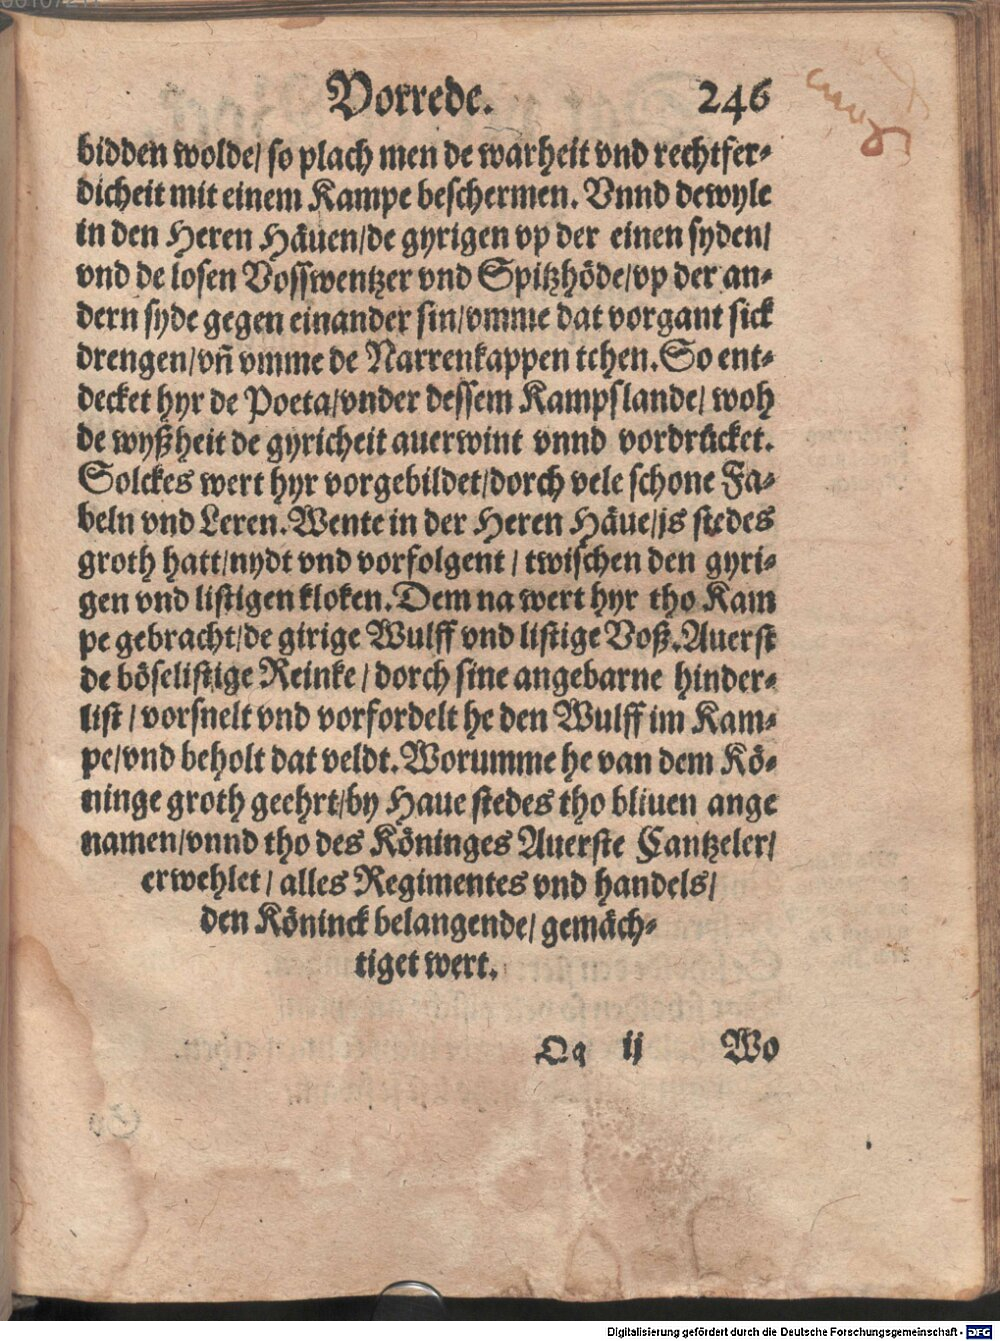 Vorrede. 246
bidden wolde/ so plach men de warheit vnd rechtfer-
dicheit mit einem Kampe beschermen. Vnnd dewyle
in den Heren Häuen/de gyrigen vp der einen syden/
vnd de losen Vossswentzer vnd Spitzhöde/vp der an-
dern syde gegen einander sin/vmme dat vorgant sick
drengen/vñ vmme de Narrenkappen tehen. So ent-
decket hyr de Poeta/vnder dessem Kampslande/ woh
de wyßheit de gyricheit auerwint vnnd vordrücket.
Solckes wert hyr vorgebildet/dorch vele schone Fa-
beln vnd Leren. Wente in der Heren Häue/is stedes
groth hatt/nydt vnd vorfolgent / twischen den gyri-
gen vnd listigen kloken. Dem na wert hyr tho Kam
pe gebracht/de girige Wulff vnd listige Voß. Auerst
de böselistige Reinke / dorch sine angebarne hinder-
list / vorsnelt vnd vorfordelt he den Wulff im Kam-
pe/vnd beholt dat veldt. Worumme he van dem Kö-
ninge groth geehrt/by Haue stedes tho bliuen ange
namen/vnnd tho des Köninges Auerste Cantzeler/
erwehlet / alles Regimentes vnd handels/
den Köninck belangende/ gemäch-
tiget wert.
Qq ij Wo
Digitalisierung gefördert durch die Deutsche Forschungsgemeinschaft - DFG